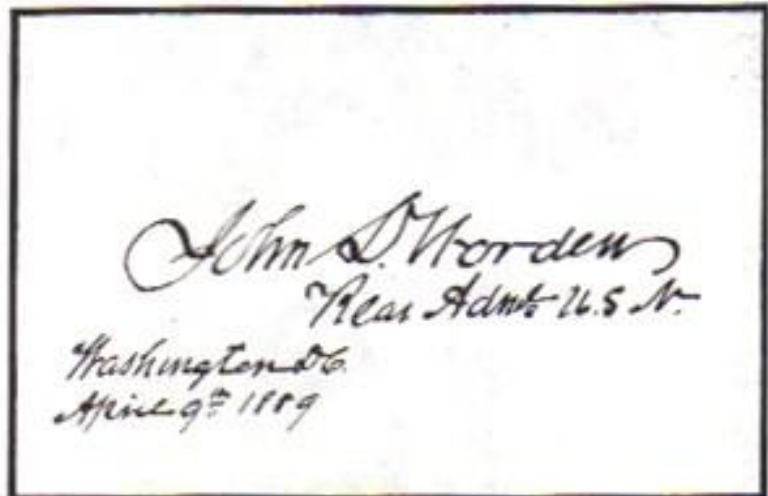 John L. Worden
Rear Adml U.S.N.
Washington D.C.
April 9th 1889